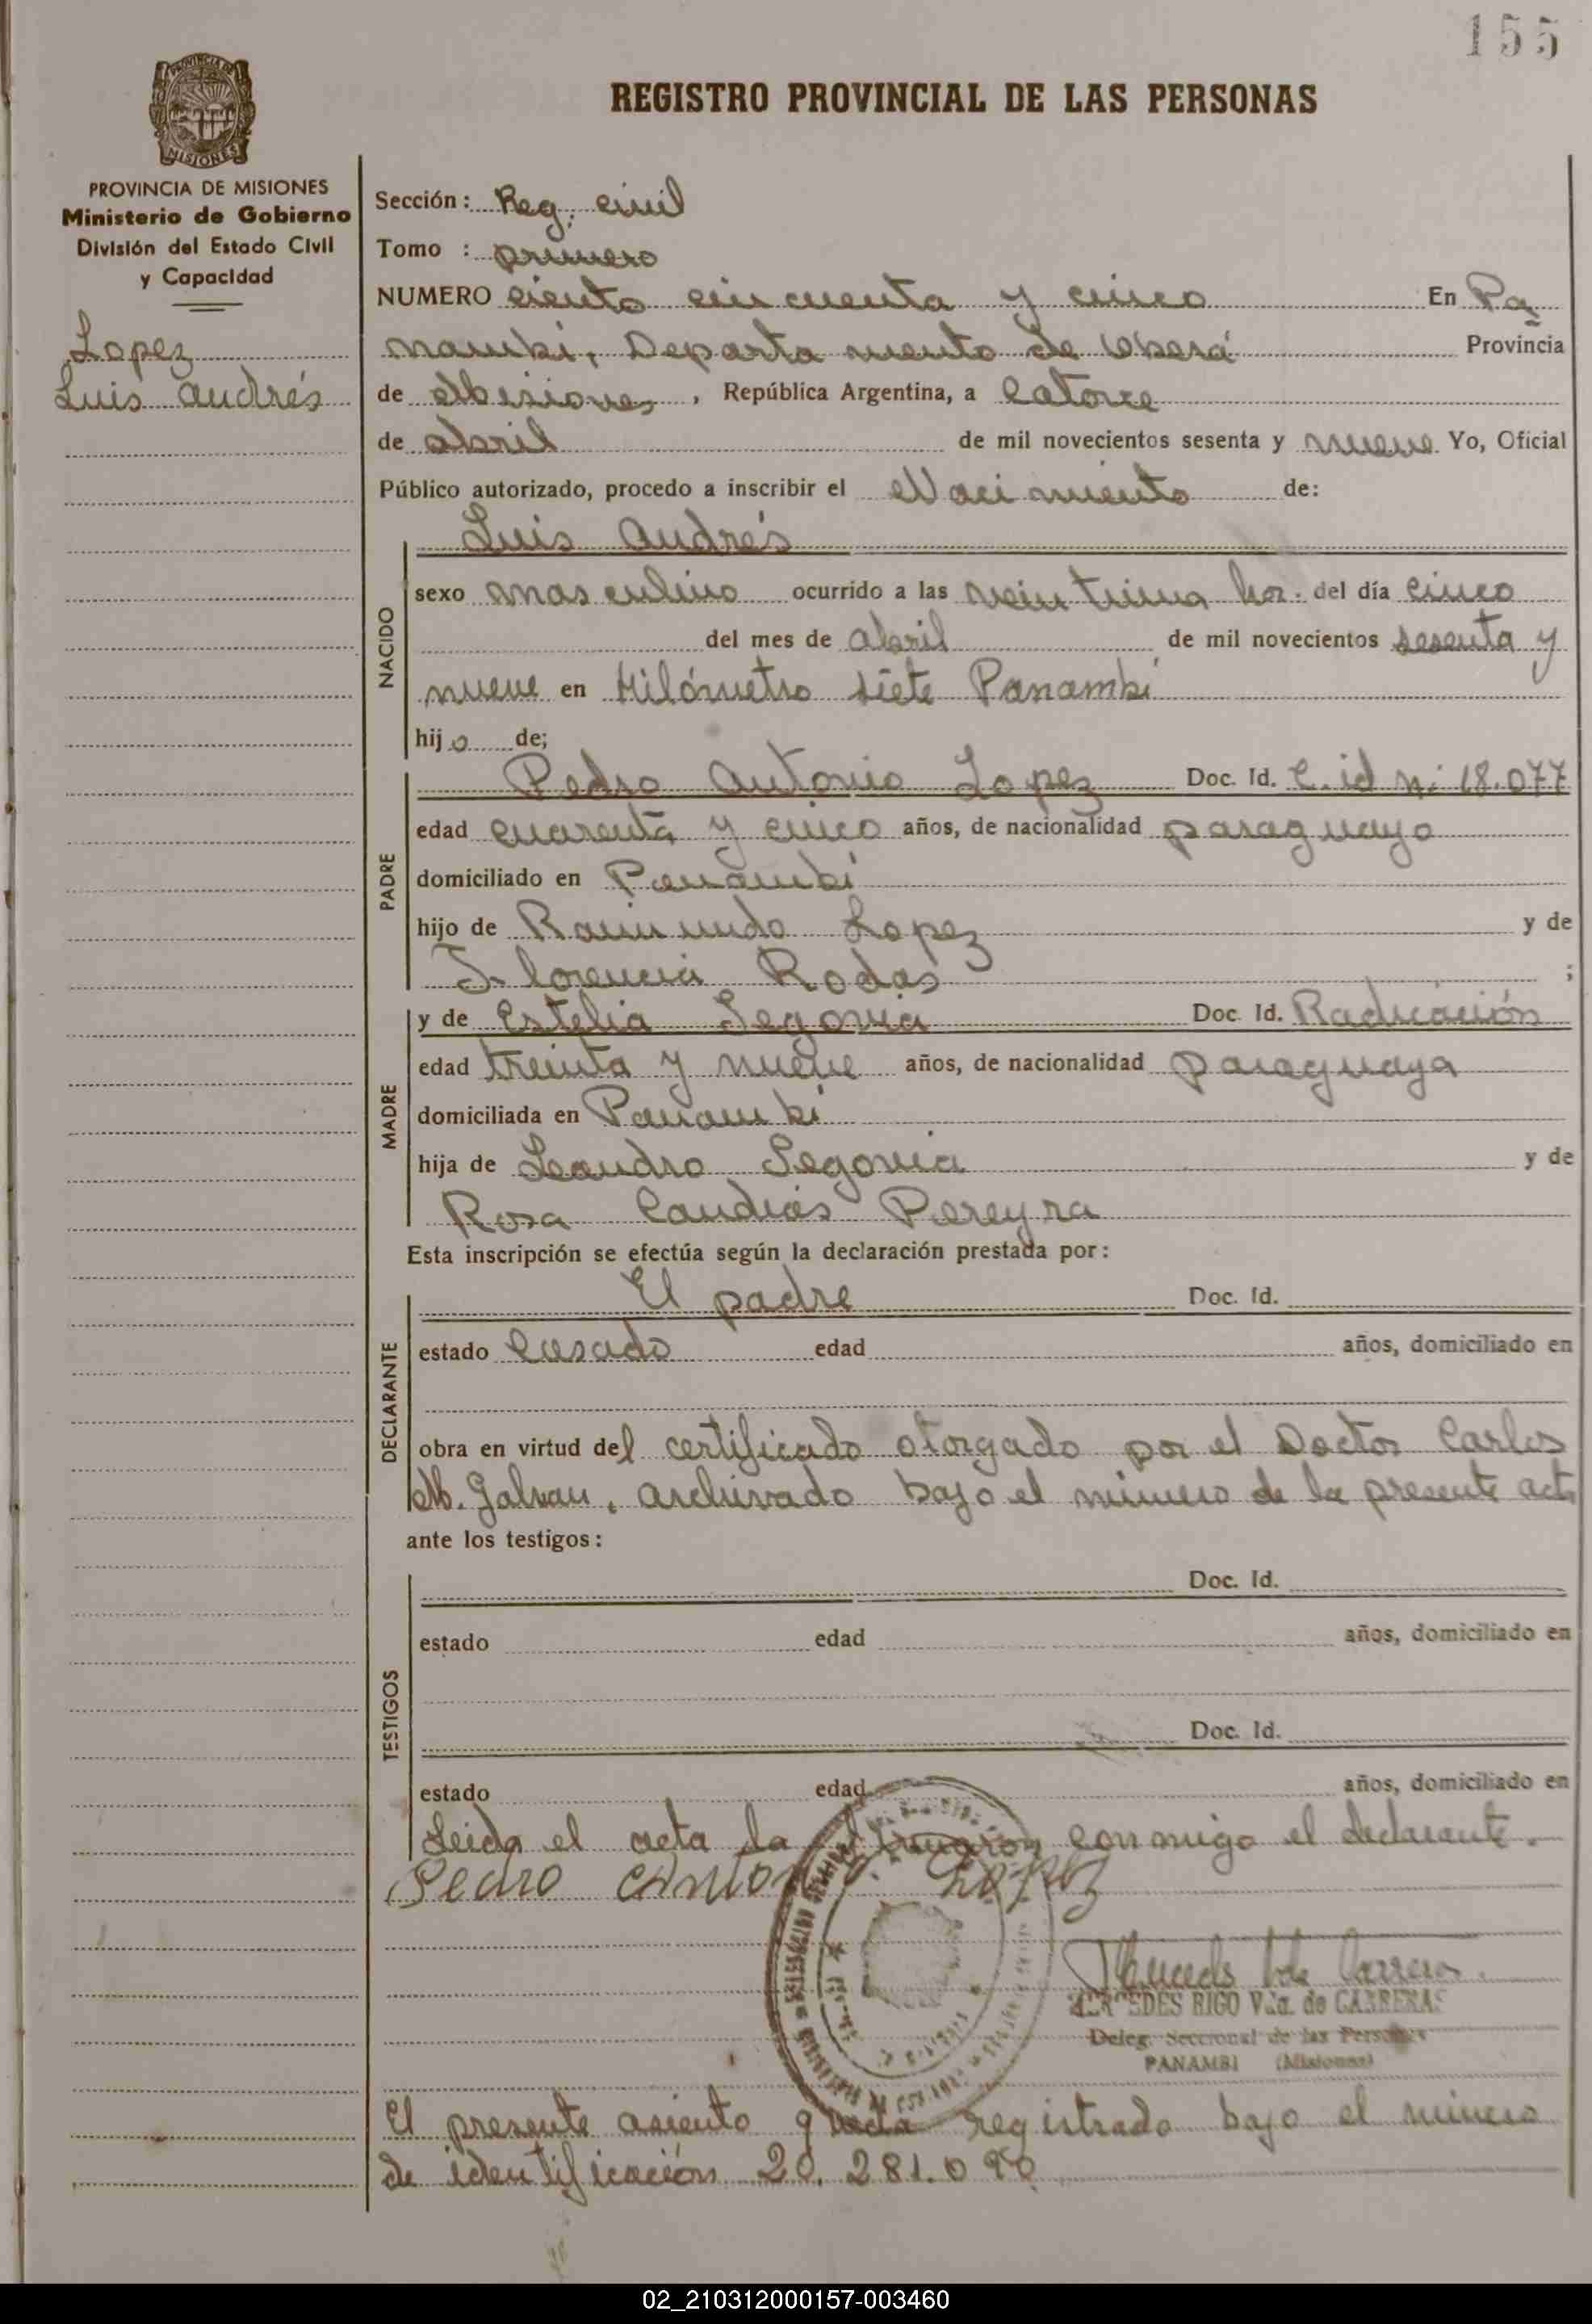 155
REGISTRO PROVINCIAL DE LAS PERSONAS
PROVINCIA DE MISIONES
Ministerio de Gobierno
División del Estado Civil
y Capacidad
Lopez
Luis Andrés
Sección: Reg. civil
Tomo : primero
NUMERO ciento cincuenta y cinco En Pa
nambi, Departamento de Oberá Provincia
de Misiones, República Argentina, a Catorce
de abril de mil novecientos sesenta y nueve Yo, Oficial
Público autorizado, procedo a inscribir el Nacimiento de:
NACIDO
Luis Andrés
sexo masculino ocurrido a las veintiuna hor. del día cinco
del mes de abril de mil novecientos sesenta y
nueve en Kilómetro siete Panambí
hijo de;
PADRE
Pedro Antonio Lopez Doc. Id. C. id Nº 18.077
edad cuarenta y cinco años, de nacionalidad paraguayo
domiciliado en Panambí
hijo de Raimundo Lopez y de
Florencia Rodas ;
MADRE
y de Estelia Segovia Doc. Id. Radicación
edad treinta y nueve años, de nacionalidad paraguaya
domiciliada en Panambí
hija de Leandro Segovia y de
Rosa Candias Pereyra
Esta inscripción se efectúa según la declaración prestada por:
DECLARANTE
El padre Doc. Id.
estado Casado edad años, domiciliado en
obra en virtud del certificado otorgado por el Doctor Carlos
M. Galvan, archivado bajo el número de la presente acta
ante los testigos:
TESTIGOS
Doc. Id.
estado edad años, domiciliado en
Doc. Id.
estado edad años, domiciliado en
Leida el acta la firmaron conmigo el declarante.
Pedro Antonio Lopez
MERCEDES RIGO Vda. de CARRERAS
Deleg. Seccional de las Personas
PANAMBI (Misiones)
El presente asiento queda registrado bajo el número
de identificación 20.281.090
02_210312000157-003460